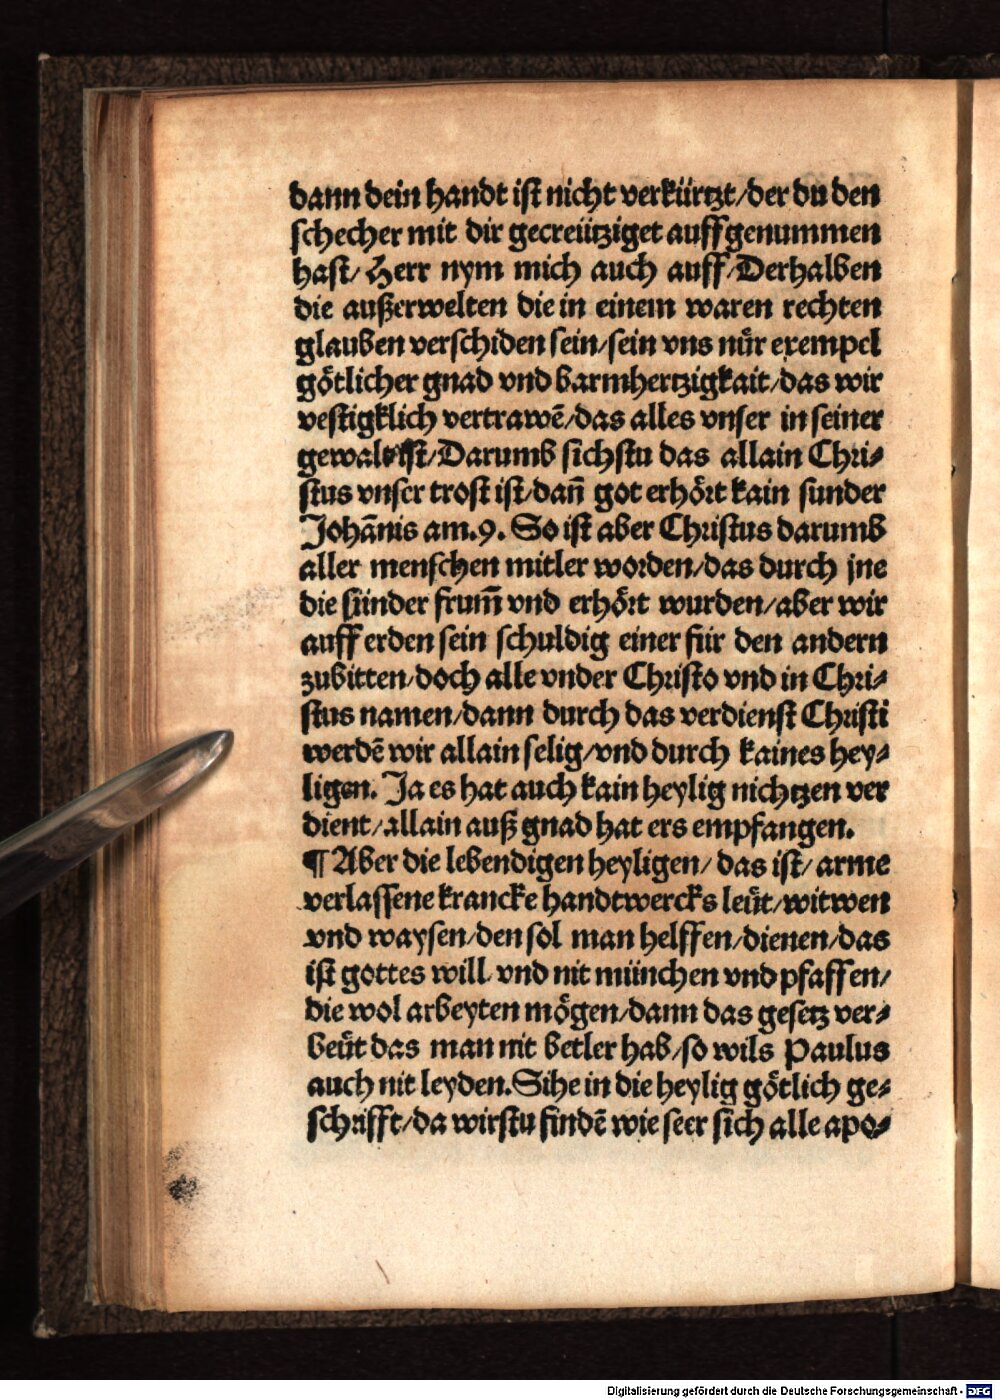 dann dein handt ist nicht verkürtzt/der du den
schecher mit dir gecreützіget auffgenummen
hast/ Herr nym mich auch auff/Derhalben
die außerwelten die in einem waren rechten
glauben verschiden sein/sein vns nůr exempel
götlicher gnad vnd barmhertzigkait/das wir
vestigklich vertrawē/das alles vnser in seiner
gewalt ist/Darumb sichstu das allain Chri⸗
stus vnser trost ist/dañ got erhört kain sunder
Johānis am.9. So ist aber Christus darumb
aller menschen mitler worden/das durch jne
die sünder frum̄ vnd erhört wurden/aber wir
auff erden sein schuldig einer für den andern
zubitten/doch alle vnder Christo vnd in Chri⸗
stus namen/dann durch das verdienst Christi
werdē wir allain selig/vnd durch kaines hey⸗
ligen. Ja es hat auch kain heylig nichtzen ver
dient/allain auß gnad hat ers empfangen.
¶ Aber die lebendigen heyligen/ das ist/ arme
verlassene krancke handtwercks leüt/witwen
vnd waysen/den sol man helffen/dienen/das
ist gottes will/vnd nit münchen vnd pfaffen/
die wol arbeyten mögen/dann das gesetz ver⸗
beüt das man nit betler hab/so wils Paulus
auch nit leyden.Sihe in die heylig götlich ge⸗
schrifft/da wirstu findē wie seer sich alle apo⸗
Digitalisierung gefördert durch die Deutsche Forschungsgemeinschaft - DFG